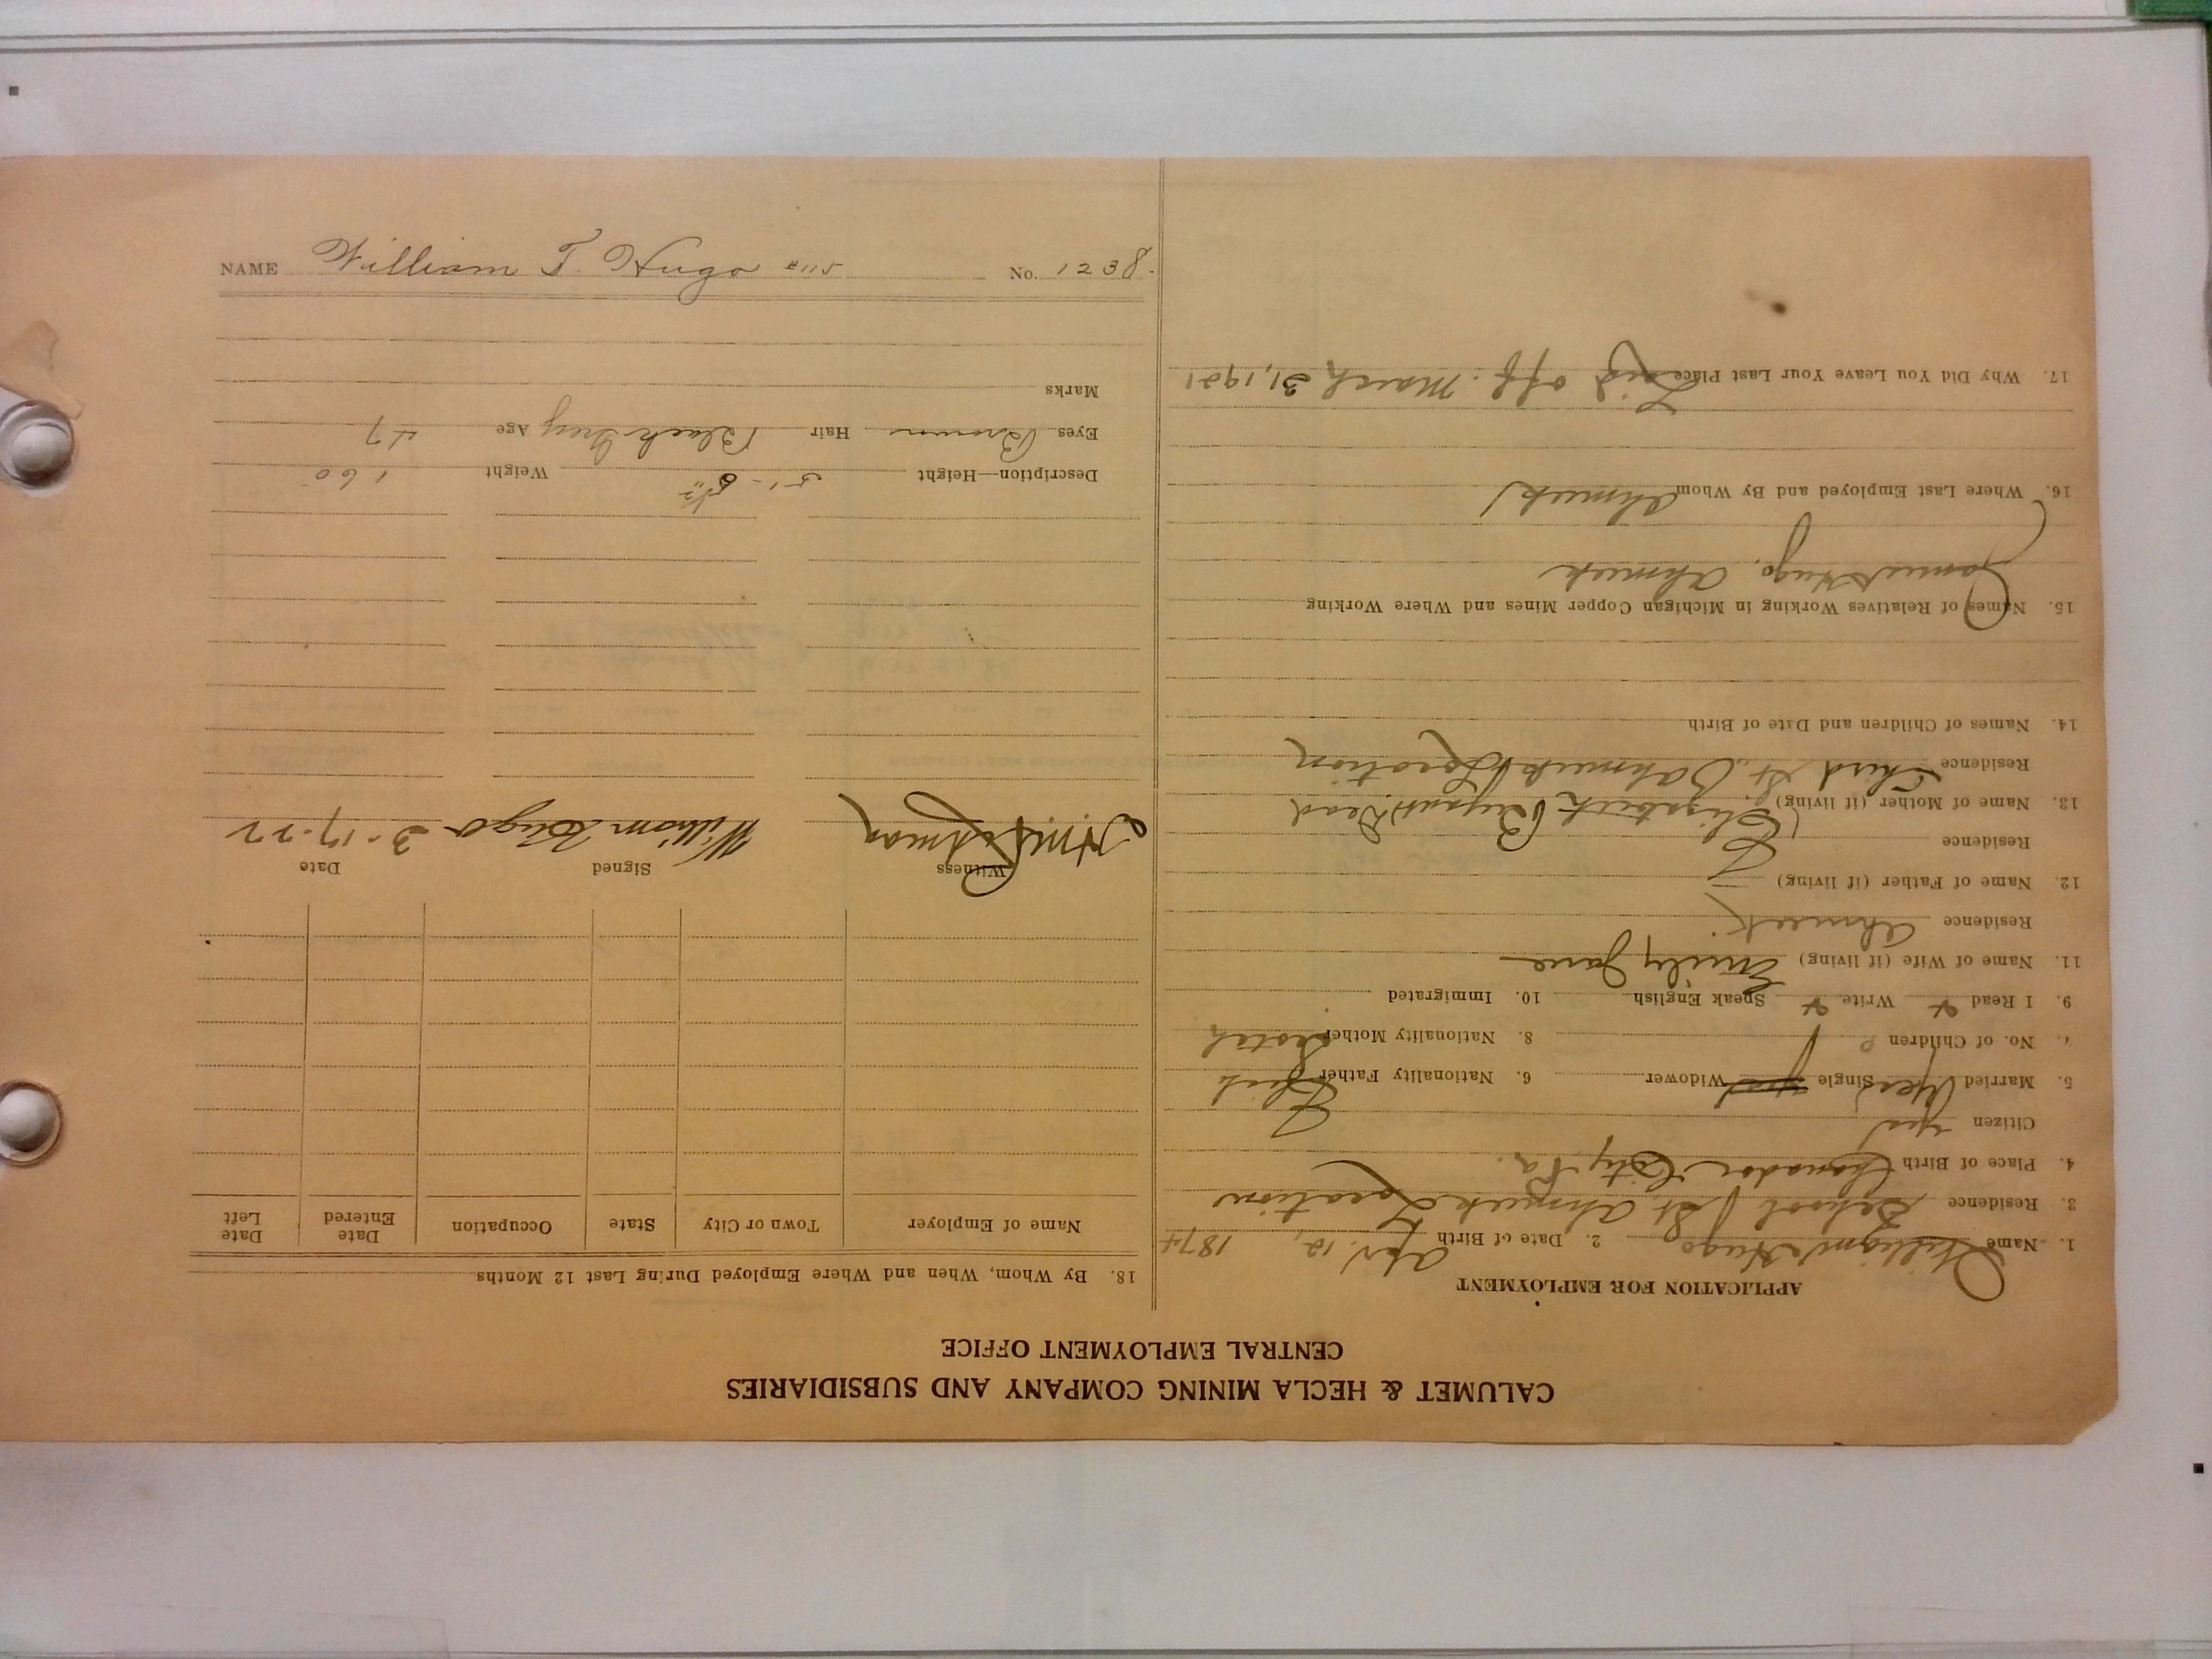 CALUMET & HECLA MINING COMPANY AND SUBSIDIARIES
CENTRAL EMPLOYMENT OFFICE
APPLICATION FOR EMPLOYMENT
1. Name William Hugo 2. Date of Birth Apr. 12, 1874
3. Residence School St. Ahmeek Location
4. Place of Birth City, Pa.
Citizen yes
5. Married Yes Single Widower 6. Nationality Father
7. No. of Children 0 8. Nationality Mother Scotch
9. I Read Write Speak English 10. Immigrated
11. Name of Wife (if living) Emily Jane
Residence Ahmeek
12. Name of Father (if living)
Residence
13. Name of Mother (if living) Elizabeth Dead
Residence Third St. Ahmeek Location
14. Names of Children and Date of Birth
15. Names of Relatives Working in Michigan Copper Mines and Where Working
James Hugo. Ahmeek
16. Where Last Employed and By Whom Ahmeek
17. Why Did You Leave Your Last Place Laid off. March 31, 1921
18. By Whom, When and Where Employed During Last 12 Months
Name of Employer Town or City State Occupation Date Entered Date Left
Witness Signed Date
William Hugo 3-17-22
Description—Height 5'- 8 1/2" Weight 160
Eyes Brown Hair Black Grey Age 47
Marks
NAME William T. Hugo #115 No. 1238.